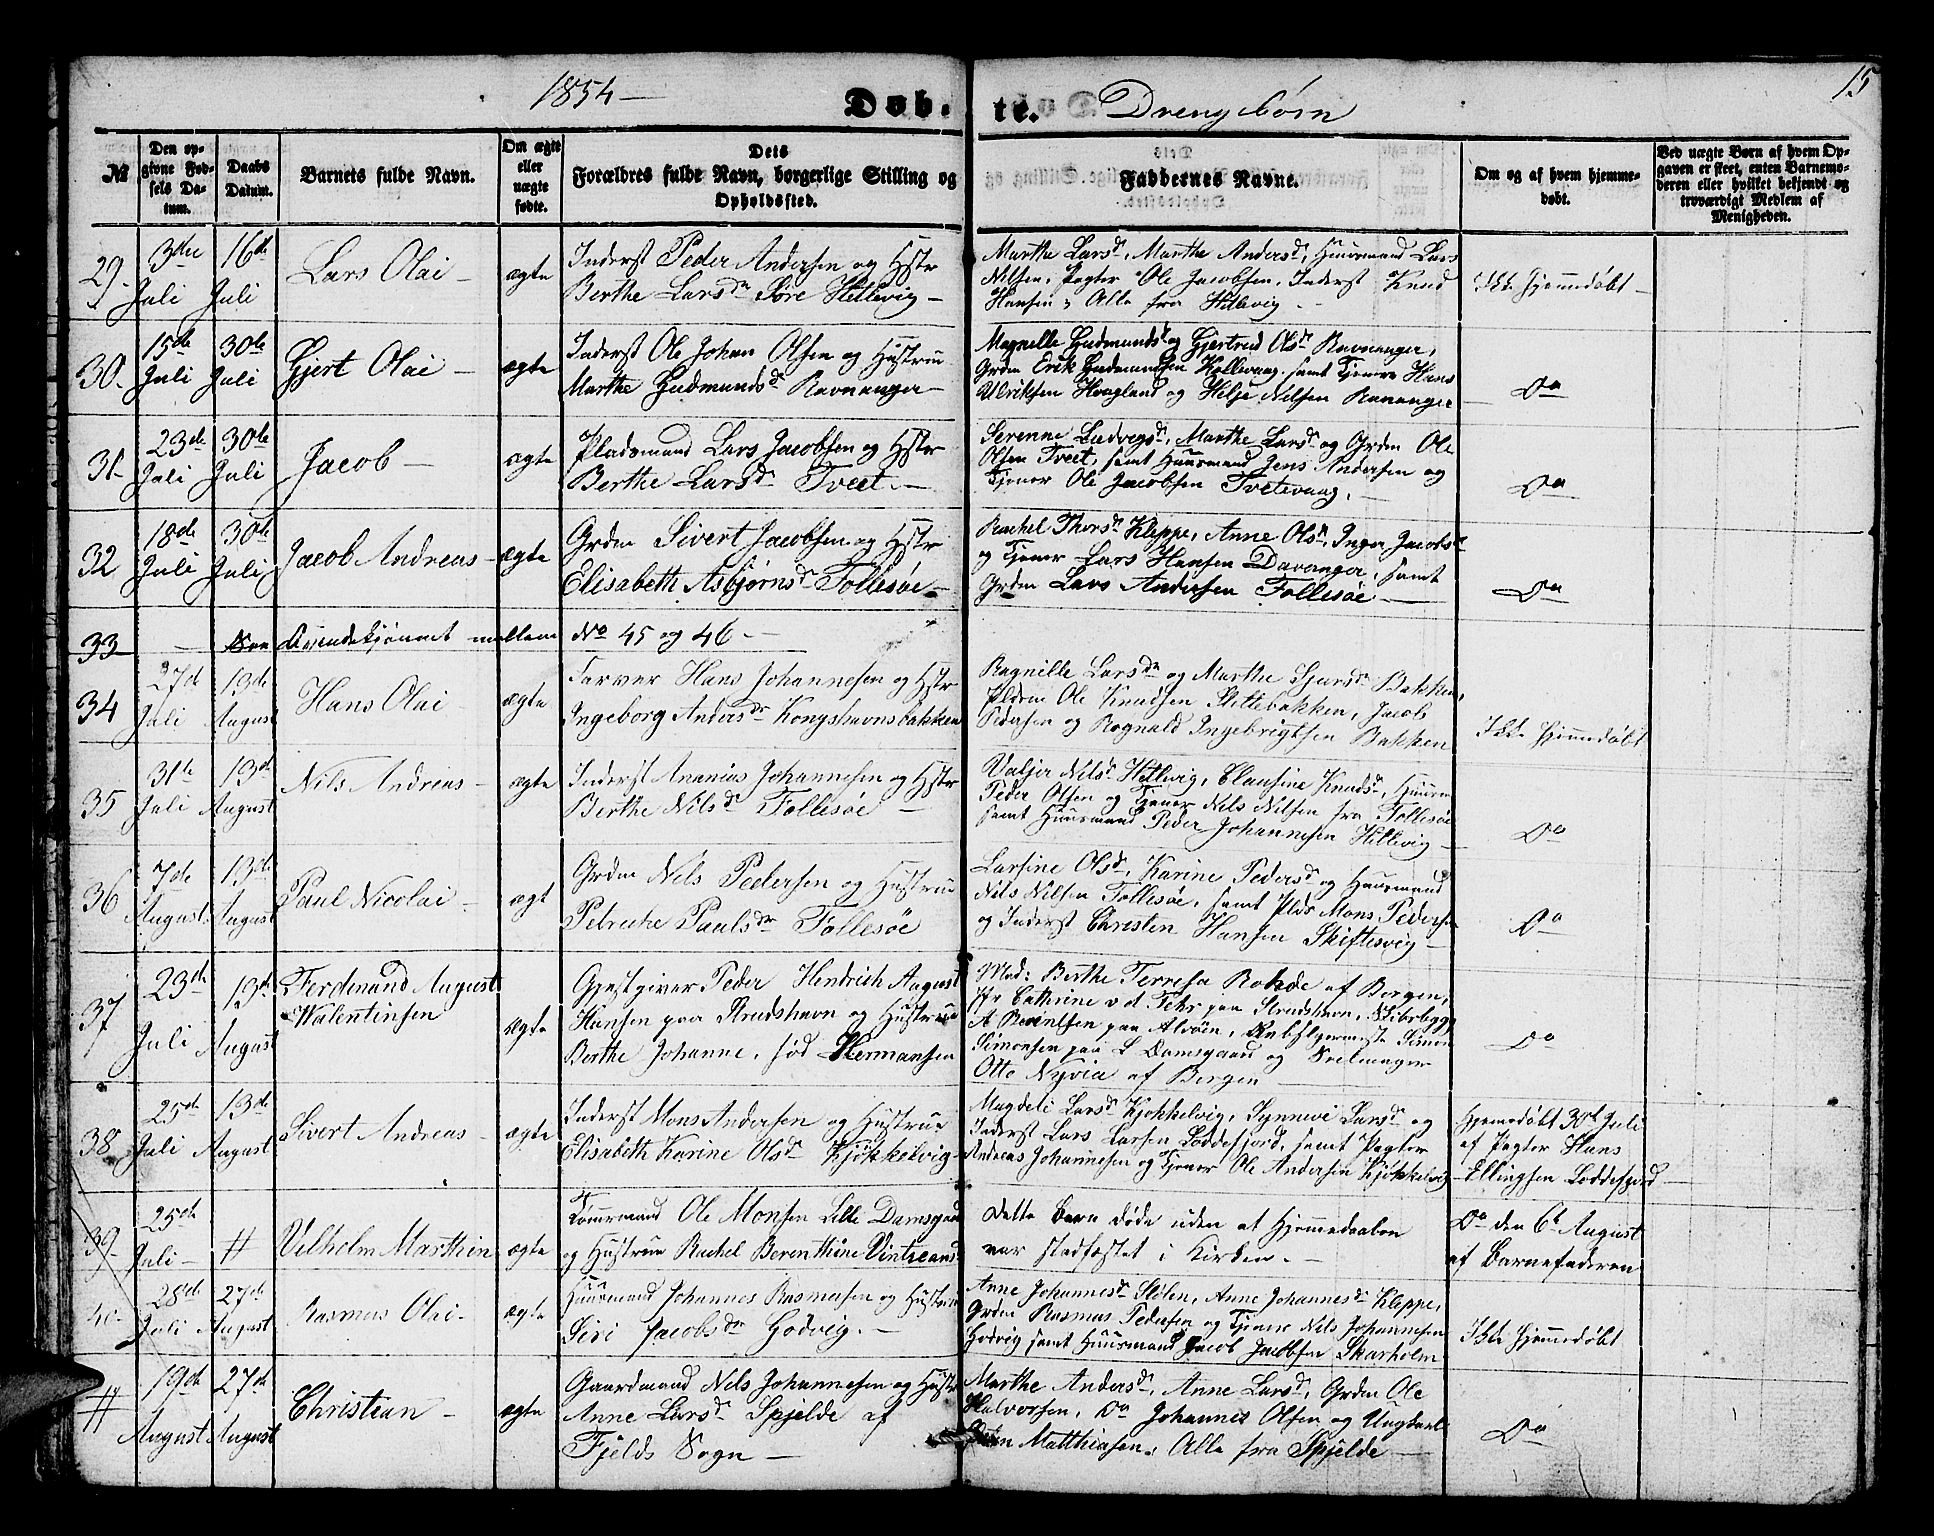 1854 —
Døb-
te.
Drengebørn
15
№
Den op-
givne Fød-
sels Da-
tum.
Daabs
Datum.
Barnets fulde Navn.
Om ægte
eller
uægte
fødte.
Dets
Forældres fulde Navn, borgerlige Stilling og
Opholdssted.
Faddernes Navne.
Om og af hvem hjemme-
døbt.
Ved uægte Børn af hvem Op-
gaven er skeet, enten Barnemo-
deren eller hvilket bekjendt og
troværdigt Medlem af
Menigheden.
29.
3die
Juli
16de
Juli
Lars Olai —
ægte
Inderst Peder Andersen og Hstr
Berthe Larsdr Søre Hillevig —
Marthe Larsdr, Marthe Andersdr, Huusmand Lars
Nilsen, Pagter Ole Jacobsen, Inderst Knud
Hansen; Alle fra Hillevig —
Ikke hjemmedøbt —
30.
15de
Juli
30te
Juli
Gjert Olai —
ægte
Inderst Ole Johan Olsen og Hustrue
Marthe Gudmundsdr Ravnanger —
Magnille Gudmundsdr og Gjertrud Olsdr Ravnanger,
Grdm Erik Gudmundsen Kollevaag, samt Tjener Hans
Ulriksen Hougland og Helje Nilsen Ravnanger
Do
31.
23de
Juli
30te
Juli
Jacob —
ægte
Pladsmand Lars Jacobsen og Hstr
Berthe Larsdr Tveet. —
Serenne Ludvigsdr, Marthe Larsdr og Grdm Ole
Olsen Tveet, samt Huusmand Jens Andersen og
Tjener Ole Jacobsen Tvetevaag. —
Do
32
18de
Juli
30te
Juli
Jacob Andreas —
ægte
Grdm Sivert Jacobsen og Hstr
Elisabeth Asbjørnsdr Follesøe —
Rachel Thorsdr Kleppe, Anne Olsdr, Inger Jacobsdr
og Tjener Lars Hansen Davanger, samt
Grdm Lars Andersen Follesøe —
Do
33
—
See Qvindekjønnet mellem No 45 og 46 —
34
27de
Juli
13de
August
Hans Olai —
ægte
Farver Hans Johannesen og Hstr
Ingeborg Andersdr Kongshavnsbakken
Ragnille Larsdr og Marthe Sjursdr Bakken,
Pldsm Ole Knudsen Slettebakken, Jacob
Pedersen og Rognald Ingebrigtsen Bakken
Ikke hjemmedøbt
35
31te
Juli
13de
August
Nils Andreas —
ægte
Inderst Ananias Johannesen og Hstr
Berthe Nilsdr Follesøe —
Valjer Nilsdr Hillevig, Clausine Knudsdr, Huusm
Peder Olsen og Tjener Nils Nilsen fra Follesøe
samt Huusmand Peder Johannesen Hillevig —
Do
36
7de
August
13de
August
Paul Nicolai —
ægt
Grdm Nils Pedersen og Hustrue
Petricke Paulsdr Follesøe
Larsine Olsdr, Karine Pedersdr og Huusmand
Nils Nilsen Follesøe, samt Plds Mons Pedersen
og Inderst Christen Hansen Skiftesvig —
Do
37
23de
Juli
13de
August
Ferdinand August
Walentinsen
ægte
Gjestgiver Peder Hendrich August
Hansen paa Strudshavn og Hustrue
Berthe Johanne, fød Hermansen
Mad: Berthe Terresa Rohde af Bergen,
Jfr Cathrine v d Fehr paa Strudshavn, Skibsbygg
A Berentsen paa Alvøen, Simon
Simonsen paa L Damsgaard og Seilmager
Otto Nyvia af Bergen —
Do
38
25de
Juli
13de
August
Sivert Andreas —
ægte
Inderst Mons Andersen og Hustrue
Elisabeth Karine Olsdr Kjøkkelvig —
Magdeli Larsdr Kjøkkelvig, Synnevi Larsdr og
Inderst Lars Larsen Loddefjord, samt Pagter
Andreas Johannesen og Tjener Ole Andersen Kjøkkelvig —
Hjemmedøbt 30te Juli
af Pagter Hans
Ellingsen Loddefjord —
39
25de
Juli —
"
Vilhelm Marthin
ægte
Tømmermand Ole Monsen Lille Damsgaard
og Hustrue Rachel Berenthine Vintreand
Dette Barn døde uden at Hjemmedaaben
var stadfæstet i Kirken. —
Do den 6te August
af Barnefaderen
40.
28de
Juli
27de
August
Rasmus Olai —
ægte
Huusmand Johannes Rasmusen og Hustrue
Siri Jacobsdr Godvig. —
Anne Johannesdr Stølen, Anne Johannesdr Kleppe,
Grdm Rasmus Pedersen og Tjener Nils Johannesen
Godvig samt Huusmand Jacob Jacobsen Skarholm
Ikke hjemmedøbt
"
19de
August
27de
August
Christian —
ægte
Gaardmand Nils Johannesen og Hustr
Anne Larsdr Spjelde af
Fjelds Sogn —
Marthe Andersdr, Anne Larsdr, Grdm Ole
Halvorsen, Do Johannes Olsen og Ungkarl
Matthiasen, Alle fra Spjelde —
Do